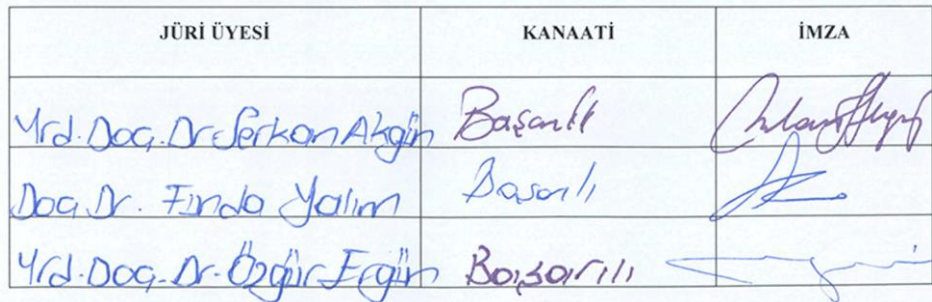 JÜRİ ÜYESİ KANAATİ İMZA
Yrd. Doç. Dr. Serkan Akgün Başarılı
Doç. Dr. Funda Yalım Başarılı
Yrd. Doç. Dr. Özgür Ergün Başarılı